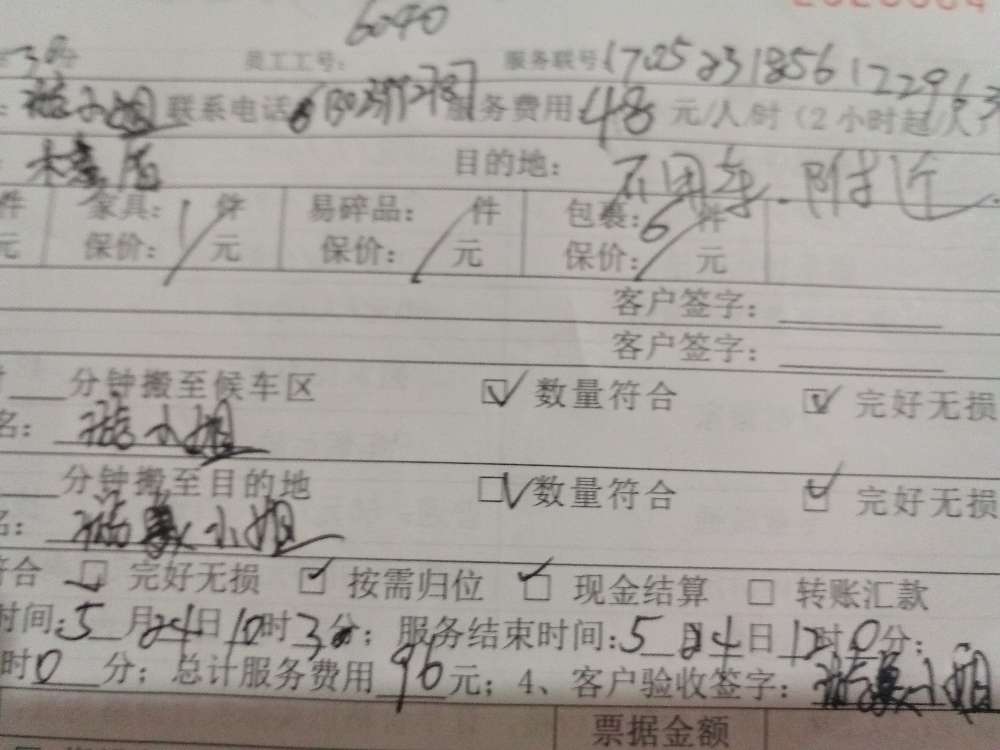 6040
员工工号: 服务联号17052318561229163
小姐 联系电话 服务费用48元/人/时(2小时起/人)
目的地: 不用车.附近.
件 家具: / 件 易碎品: / 件 包装:6 件
元 保价: / 元 保价: / 元 保价: / 元
客户签字:
客户签字:
___分钟搬至候车区 ☑数量符合 ☑完好无损
名: 小姐
___分钟搬至目的地 ☑数量符合 ☑完好无损
名: 小姐
符合 ☑ 完好无损 ☑ 按需归位 ☑ 现金结算 □ 转账汇款
时间:5月24日10时3分; 服务结束时间:5月24日12时0分;
时0分; 总计服务费用96元; 4、客户验收签字: 小姐
票据金额